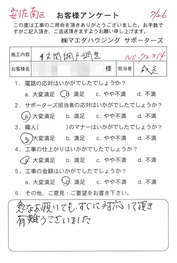 安佐南区 お客様アンケート 7/26
この度は工事のご用命を頂きありがとうございました。お手数で
すがご記入頂き、ご返送頂きますようお願い申し上げます。
㈱マエダハウジング サポーターズ
施工内容 玄関網戸調整 No.72314
お客様名 様 担当者
1. 電話の応対はいかがでしたでしょうか?
a. 大変満足 b. 満足 c. やや不満 d. 不満
2. サポーターズ担当者の応対はいかがでしたでしょうか?
a. 大変満足 b. 満足 c. やや不満 d. 不満
3. 職人( )のマナーはいかがでしたでしょうか?
a. 大変満足 b. 満足 c. やや不満 d. 不満
4. 工事の仕上がりはいかがでしたでしょうか?
a. 大変満足 b. 満足 c. やや不満 d. 不満
5. 工事の金額はいかがでしたでしょうか?
a. 大変満足 b. 満足 c. やや不満 d. 不満
6. その他、ご意見・ご要望をお書き下さい。
急なお願いでも、すぐに対応して頂き
有難うございました